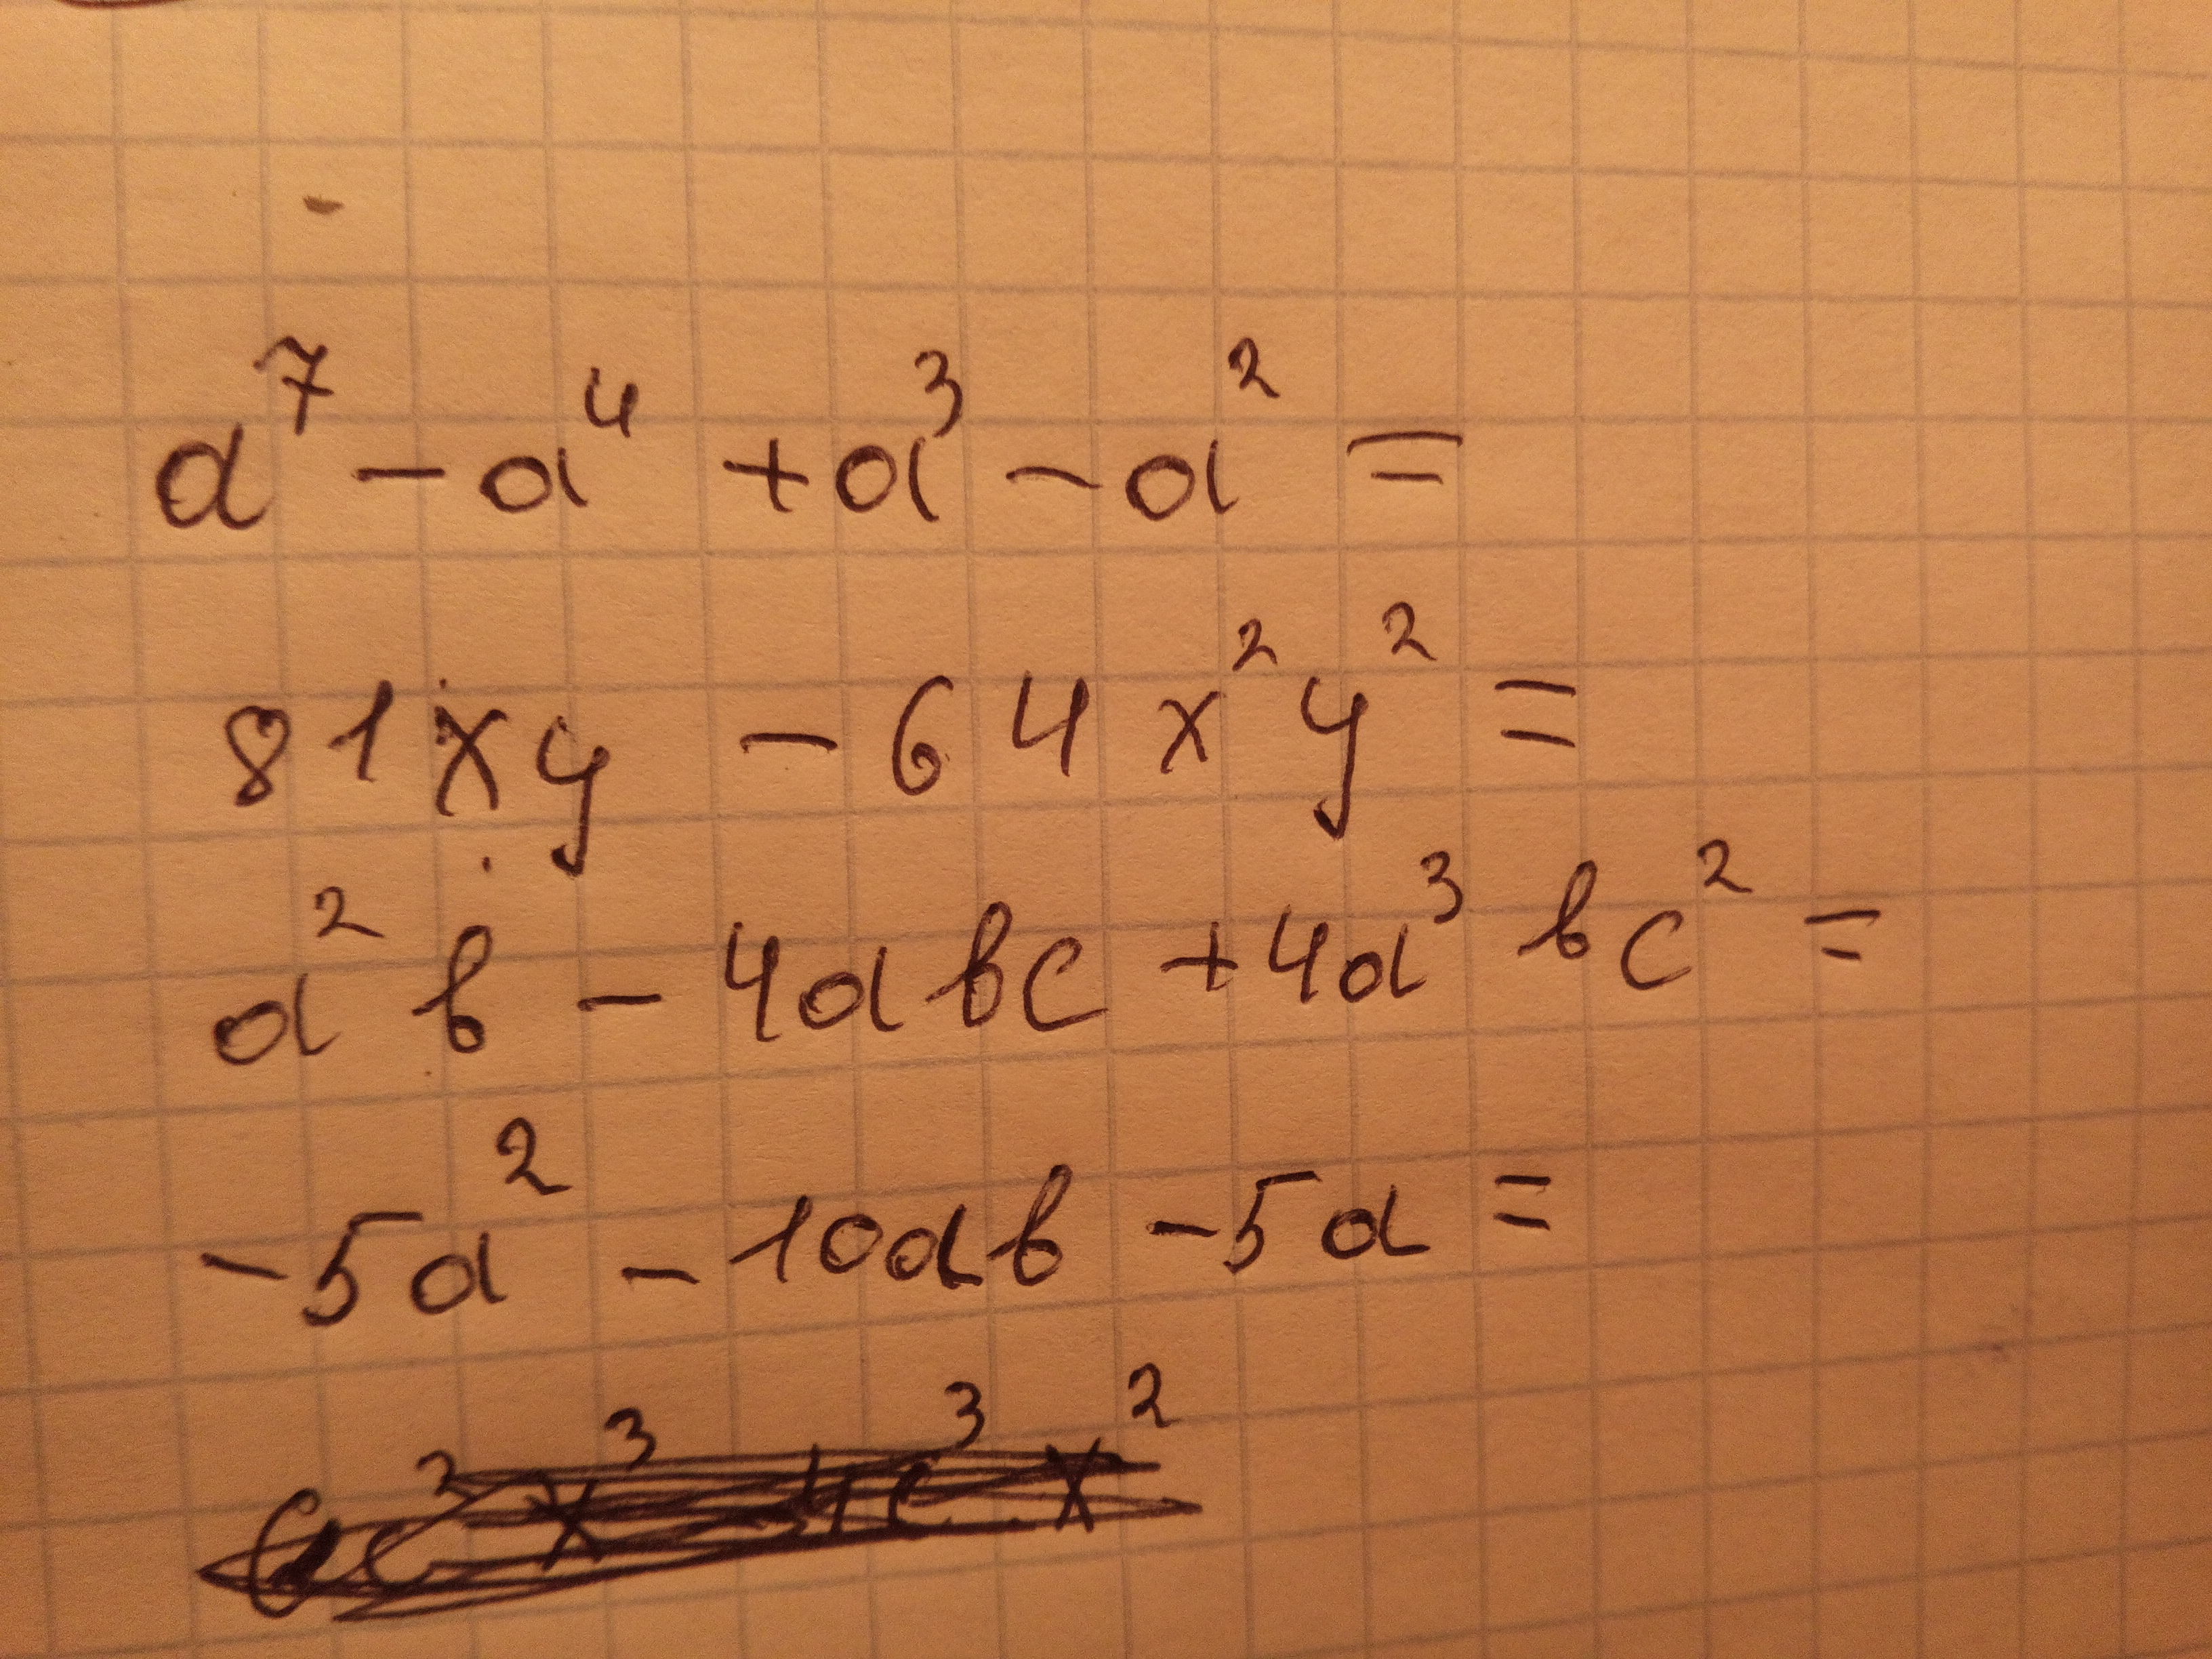 a⁷ - a⁴ + a³ - a² =
81xy - 64x²y² =
a²b - 4abc + 4a³bc² =
-5a² - 10ab - 5a =